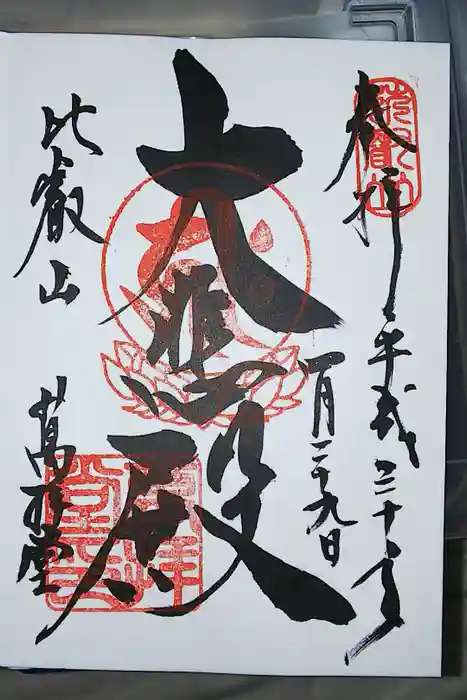 奉拝
平成三十年
一月二十九日
大悲殿
比叡山
萬拝堂